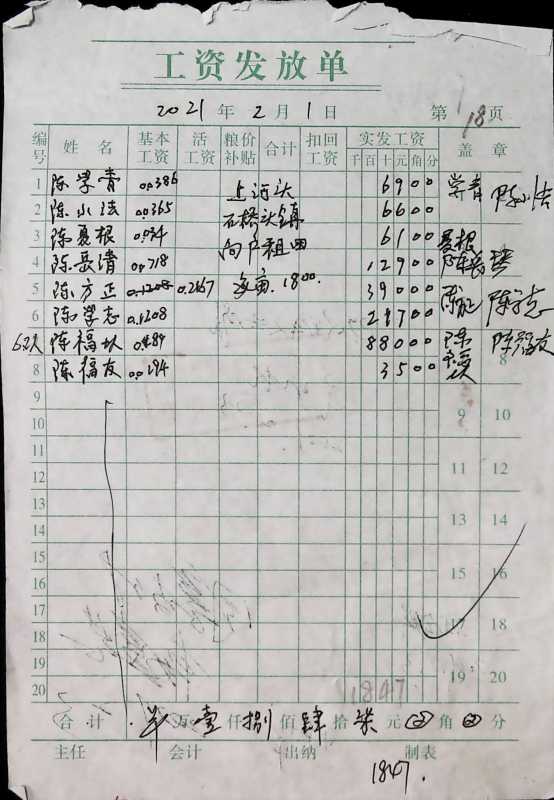 工资发放单
2021年2月1日 第18页
编号 姓名 基本工资 活工资 粮价补贴 合计 扣回工资 实发工资 千百十元角分 盖章
1 陈学青 0.0386 上河达 6900 学青
2 陈小法 0.0365 石桥头镇 6600 陈小法
3 陈夏根 向户租田 6100 夏根
4 陈岳清 0.0718 12900 陈岳清
5 陈方正 0.1208 0.2167 每亩1800. 39000 陈方正
6 陈学志 0.1208 21700 陈学志
陈福 88000 陈
8 陈福友 0.0194 3500 陈福友 8
9
10 9 10
11
12 11 12
13
14 13 14
15
16 15 16
17
18 17 18
19
20 19 20
1847
合计 万壹仟捌佰肆拾柒元角分
主任 会计 出纳 制表
1847.